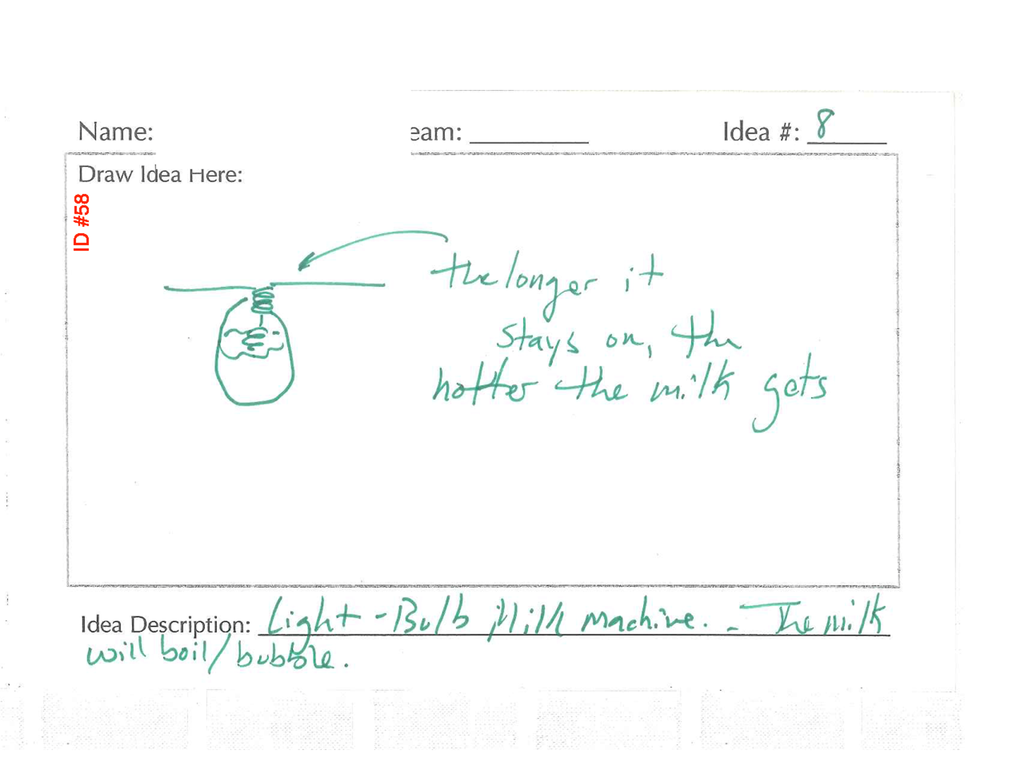 Name: eam: Idea #: 8
Draw Idea Here:
ID #58
the longer it
stays on, the
hotter the milk gets
Idea Description: Light-Bulb Milk machine. - The milk
will boil/bubble.